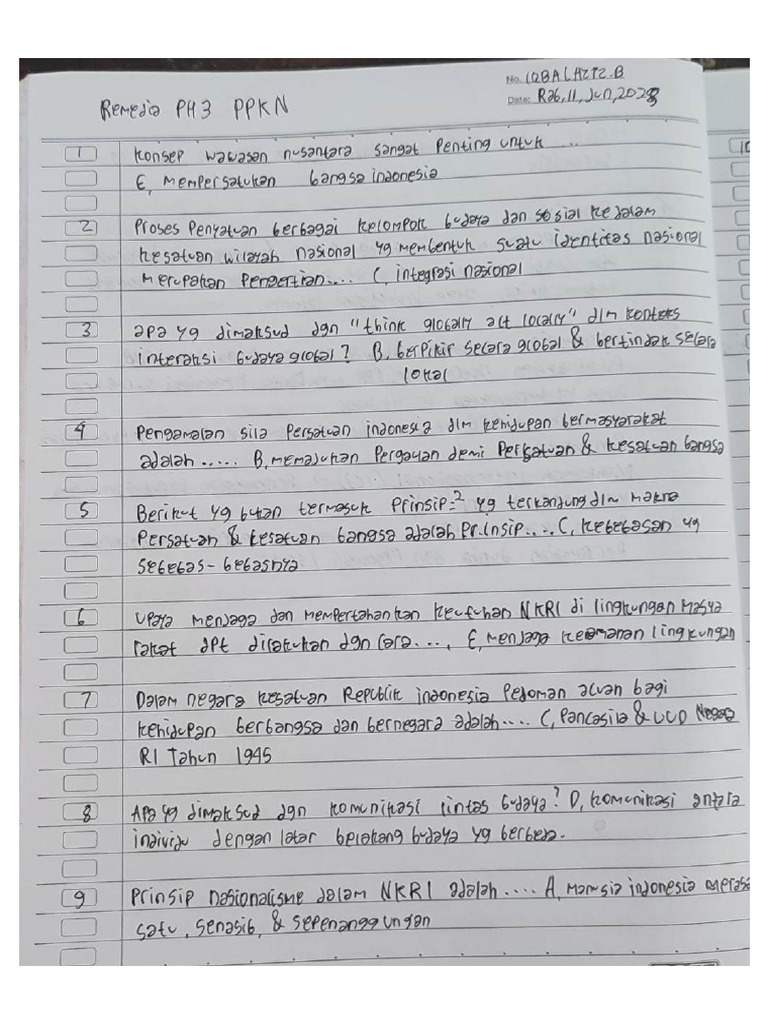 No. IQBAL AZIZ.B
Remedia PH3 PPKN
Date: Rab, 11, Jun, 2028
1 Konsep wawasan nusantara sangat Penting untuk ...
E, Mempersatukan bangsa indonesia
2 Proses Penyatuan berbagai kelompok budaya dan sosial kedalam
kesatuan wilayah nasional yg membentuk suatu identitas nasional
Merupakan Pengertian.... C, integrasi nasional
3 apa yg dimaksud dgn "think globally act locally" dlm konteks
interaksi budaya global? B. berpikir secara global & bertindak secara
lokal
4 Pengamalan sila Persatuan indonesia dlm kehidupan bermasyarakat
adalah ..... B, memajukan Pergaulan demi Persatuan & kesatuan bangsa
5 Berikut yg bukan termasuk Prinsip-2 yg terkandung dlm makna
Persatuan & kesatuan bangsa adalah Prinsip .... C, kebebasan yg
sebebas-bebasnya
6 Upaya menjaga dan mempertahankan keutuhan NKRI di lingkungan Masya
rakat dpt dilakukan dgn cara...., E, menjaga keamanan lingkungan
7 Dalam negara kesatuan Republik indonesia Pedoman acuan bagi
kehidupan berbangsa dan bernegara adalah .... C, Pancasila & UUD Negara
RI Tahun 1945
8 Apa yg dimaksud dgn komunikasi lintas budaya? D, komunikasi antara
individu dengan latar belakang budaya yg berbeda.
9 Prinsip nasionalisme dalam NKRI adalah .... A, manusia indonesia merasa
satu, senasib, & sepenanggungan
10